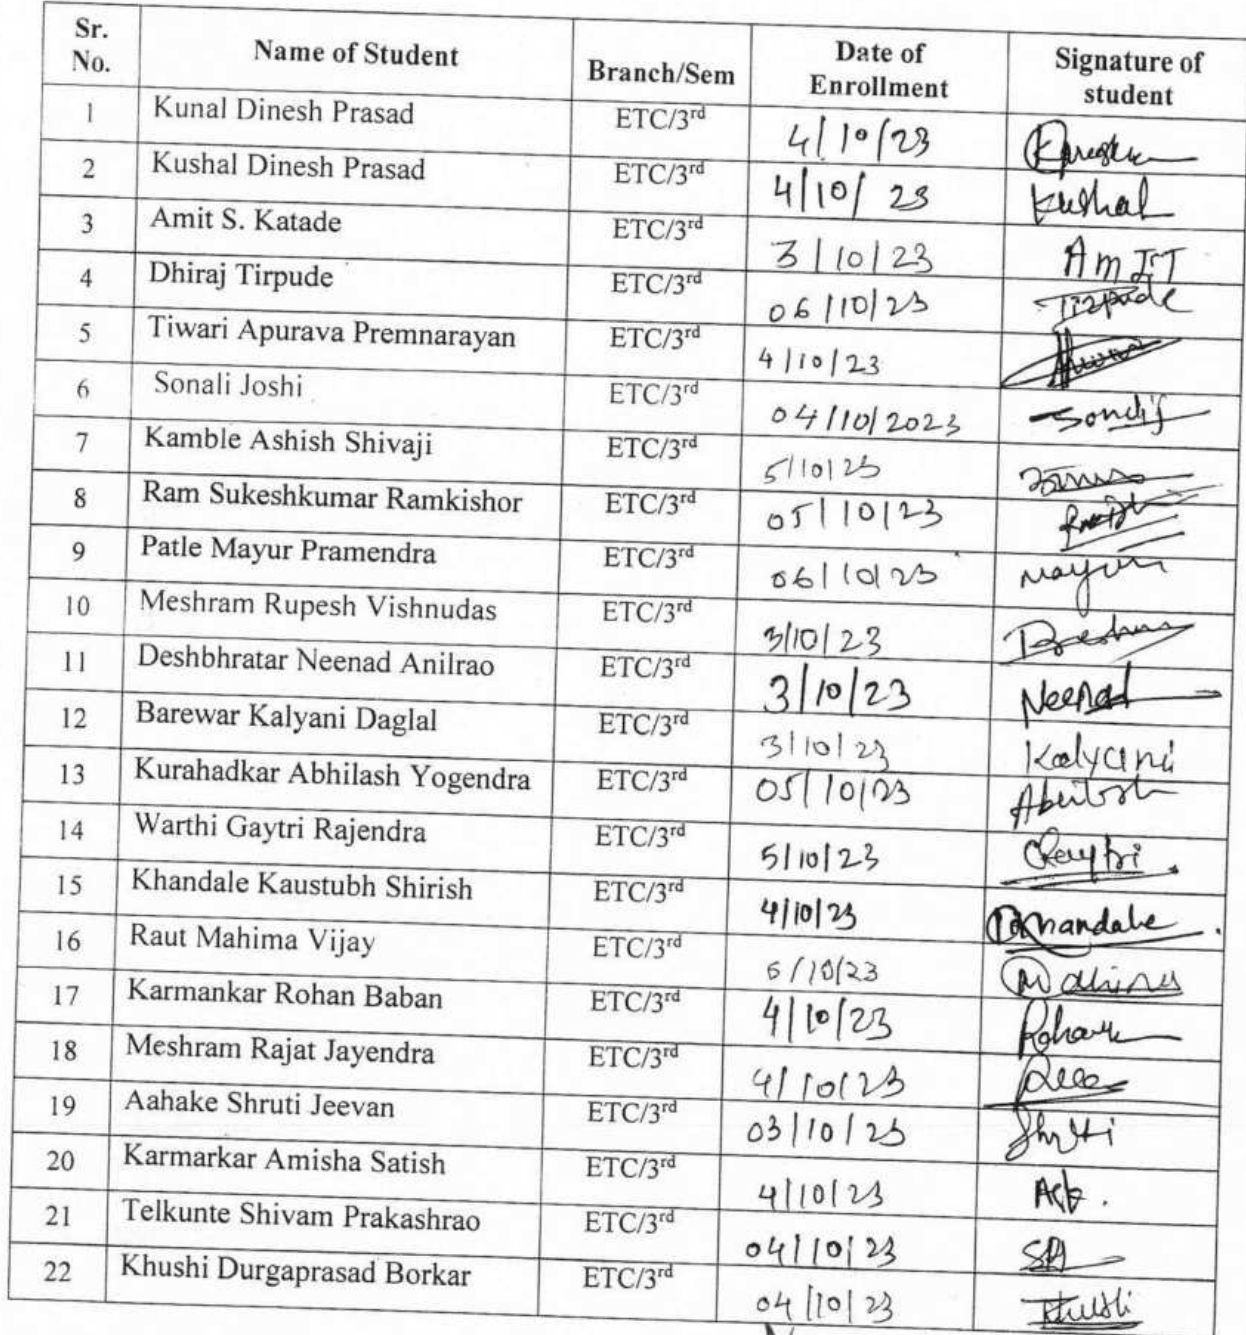 Sr. No. Name of Student Branch/Sem Date of Enrollment Signature of student
1 Kunal Dinesh Prasad ETC/3rd 4/10/23
2 Kushal Dinesh Prasad ETC/3rd 4/10/23 Kushal
3 Amit S. Katade ETC/3rd 3/10/23 AmIT
4 Dhiraj Tirpude ETC/3rd 06/10/23 Tirpude
5 Tiwari Apurava Premnarayan ETC/3rd 4/10/23
6 Sonali Joshi ETC/3rd 04/10/2023
7 Kamble Ashish Shivaji ETC/3rd 5/10/23
8 Ram Sukeshkumar Ramkishor ETC/3rd 05/10/23
9 Patle Mayur Pramendra ETC/3rd 06/10/23 Mayur
10 Meshram Rupesh Vishnudas ETC/3rd 3/10/23
11 Deshbhratar Neenad Anilrao ETC/3rd 3/10/23 Neenad
12 Barewar Kalyani Daglal ETC/3rd 3/10/23 Kalyani
13 Kurahadkar Abhilash Yogendra ETC/3rd 05/10/23
14 Warthi Gaytri Rajendra ETC/3rd 5/10/23 Gaytri
15 Khandale Kaustubh Shirish ETC/3rd 4/10/23 Khandale
16 Raut Mahima Vijay ETC/3rd /10/23
17 Karmankar Rohan Baban ETC/3rd 4/10/23
18 Meshram Rajat Jayendra ETC/3rd 4/10/23
19 Aahake Shruti Jeevan ETC/3rd 03/10/23 Shruti
20 Karmarkar Amisha Satish ETC/3rd 4/10/23
21 Telkunte Shivam Prakashrao ETC/3rd 04/10/23
22 Khushi Durgaprasad Borkar ETC/3rd 04/10/23 Khushi